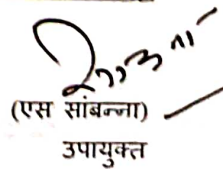 (एस सांबन्ना)
उपायुक्त